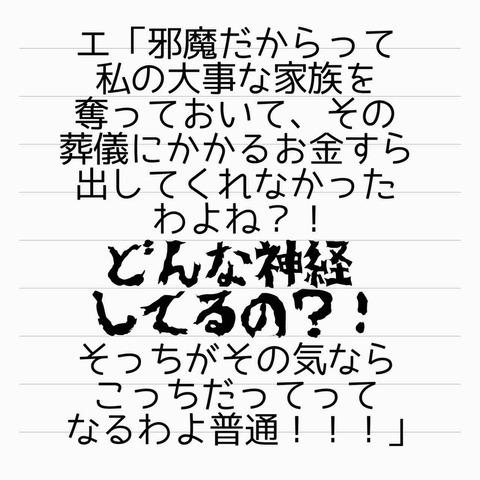 エ「邪魔だからって
私の大事な家族を
奪っておいて、その
葬儀にかかるお金すら
出してくれなかった
わよね？！
どんな神経
してるの？！
そっちがその気なら
こっちだってって
なるわよ普通！！！」